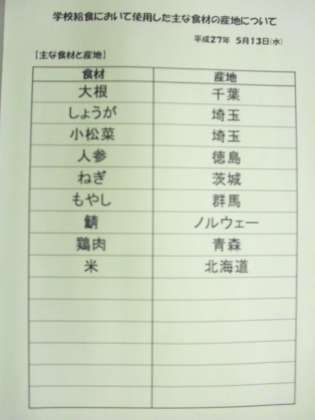 学校給食において使用した主な食材の産地について
平成27年 5月13日(水)
[主な食材と産地]
食材 産地
大根 千葉
しょうが 埼玉
小松菜 埼玉
人参 徳島
ねぎ 茨城
もやし 群馬
鯖 ノルウェー
鶏肉 青森
米 北海道